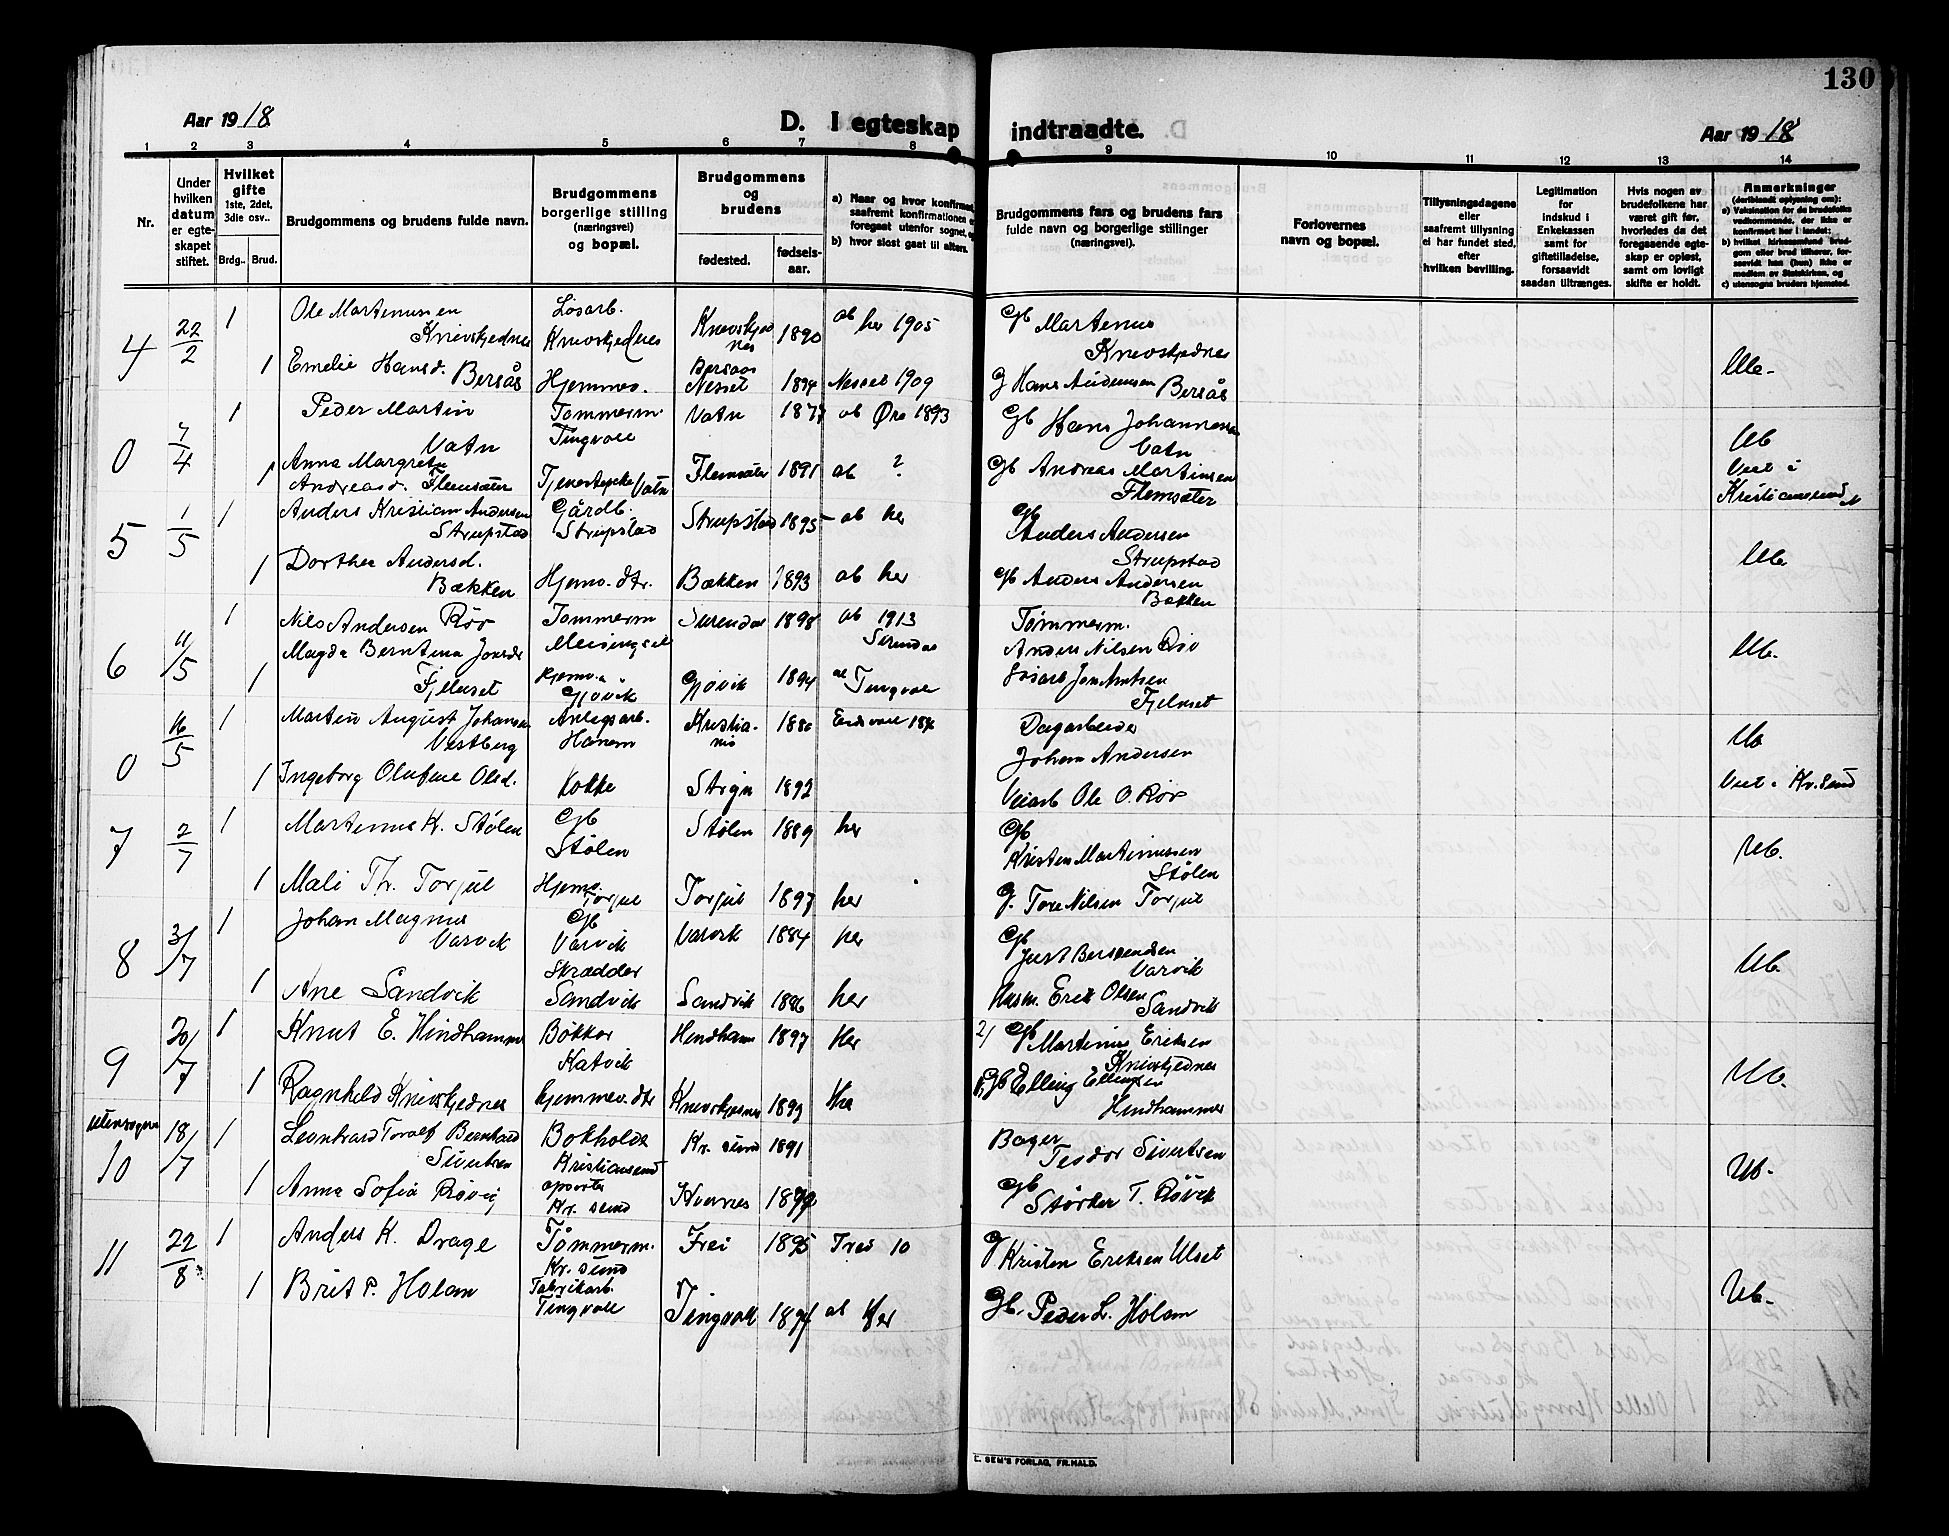 130
Aar 1918
D. I egteskap indtraadte.
Aar 1918
1 2 3 4 5 6 7 8 9 10 11 12 13 14
Nr.
Under hvilken datum er egteskapet stiftet.
Hvilket gifte
1ste, 2det, 3die osv..
Brdg.. Brud.
Brudgommens og brudens fulde navn.
Brudgommens borgerlige stilling (næringsvei) og bopæl.
Brudgommens og brudens
fødested.
fødselsaar.
a) Naar og hvor konfirmert, saafremt konfirmationen er foregaat utenfor sognet, og
b) hvor sidst gaat til alters.
Brudgommens fars og brudens fars fulde navn og borgerlige stillinger (næringsvei).
Forlovernes navn og bopæl.
Tillysningsdagene eller saafremt tillysning ei har fundet sted, efter hvilken bevilling.
Legitimation for indskud i Enkekassen samt for giftetilladelse, forsaavidt saadan tiltrænges.
Hvis nogen av brudefolkene har været gift før, hvorledes da det foregaaende egteskap er opløst, samt om lovligt skifte er holdt.
Anmerkninger
(deriblandt oplysning om):
a) Vaksination for de brudefolks vedkommende, der ikke er konfirmert her i landet;
b) hvilket kirkesamfund brudgom eller brud tilhører, forsaavidt han (hun) ikke er medlem av Statskirken, og
c) utensogns bruders hjemsted.
4 22/2 1 Ole Martenusen Knivskjednes Løsarb. Knivskjednes 1890 ab her 1905 Gb Martenus Knivskjednes
1 Emelie Hansd. Bersås Hjemmev. Bersaas Nesset 1894 Nesset 1909 G Hans Andersen Bersås Ub.
0 7/4 1 Peder Martin Vatn Tømmerm. Tingvoll Vatn 1877 ab Øre 1893 Gb Hans Johannesen Vatn Ub
1 Anna Margrete Andreasd. Flemsæter Tjenestepike Vatn Flemsæter 1891 ab ? Gb Andreas Martinsen Flemsæter Viet i Kristiansund
5 1/5 1 Anders Kristian Andersen Strupstad Gårdb. Strupstad Strupstad 1895 ab her Gb Anders Andersen Strupstad
1 Dorthea Andersd. Bækken Hjemv. dtr. Bækken 1893 ab her Gb Anders Andersen Bækken Ub.
6 11/5 1 Nils Andersen Røv Tømmerm Meisingset Surendal 1898 ab 1913 Surendal Tømmerm. Anders Nilsen Røv
1 Magda Berntina Fjelnset Hjemv. Gjøvik Gjøvik 1894 Tingvoll Fjelnset Ub.
0 16/5 1 Martin August Johansen Vestberg Anlegsarb. Hanem Kristiania Eidsvoll Dagarbeider Johan Andersen Ub
1 Ingeborg Olufine Olsd. Kokke Stryn 1892 Veiarb Ole O. Røv Viet i Kr.sund
7 2/7 1 Martenus K. Stølen Gb Stølen Stølen 1889 her Gb Kristen Martinussen Stølen
1 Mali Th. Torjul Hjemv. Torjul Torjul 1897 her G. Tore Nilsen Torjul Ub.
8 3/7 1 Johan Magnus Varvik Gb Varvik Varvik 1884 her Gb Just Varvik
1 Ane Sandvik Skrædder Sandvik Sandvik 1886 her Husm. Erik Olsen Sandvik Ub.
9 20/7 1 Knut E. Hindhammer Bøkker Katvik Hindham 1897 Her 2/ Gb Martinus Eriksen Knivskjednes
1 Ragnhild Knivskjednes hjemmev. dtr Knivskjednes 1899 Her Gb Elling Ellingsen Hindhammer Ub.
utensogns
10 18/7 1 Leonhard Toralf Bernhard Sivertsen Bokholder Kristiansund Kr. sund 1891 Bager Teodor Sivertsen
1 Anna Sofia Røvig Kr. sund Kvernes Gb Størker T. Røvik Ub.
11 22/8 1 Anders K. Drage Tømmerm. Kr. sund Frei 1895 Frei 10 G Kristen Eriksen Ulset
1 Brit P. Holam Fabrikarb. Tingvoll Tingvoll 1894 ab Her Gb. Peder L. Holam Ub.
E. SEM'S FORLAG, FR.HALD.